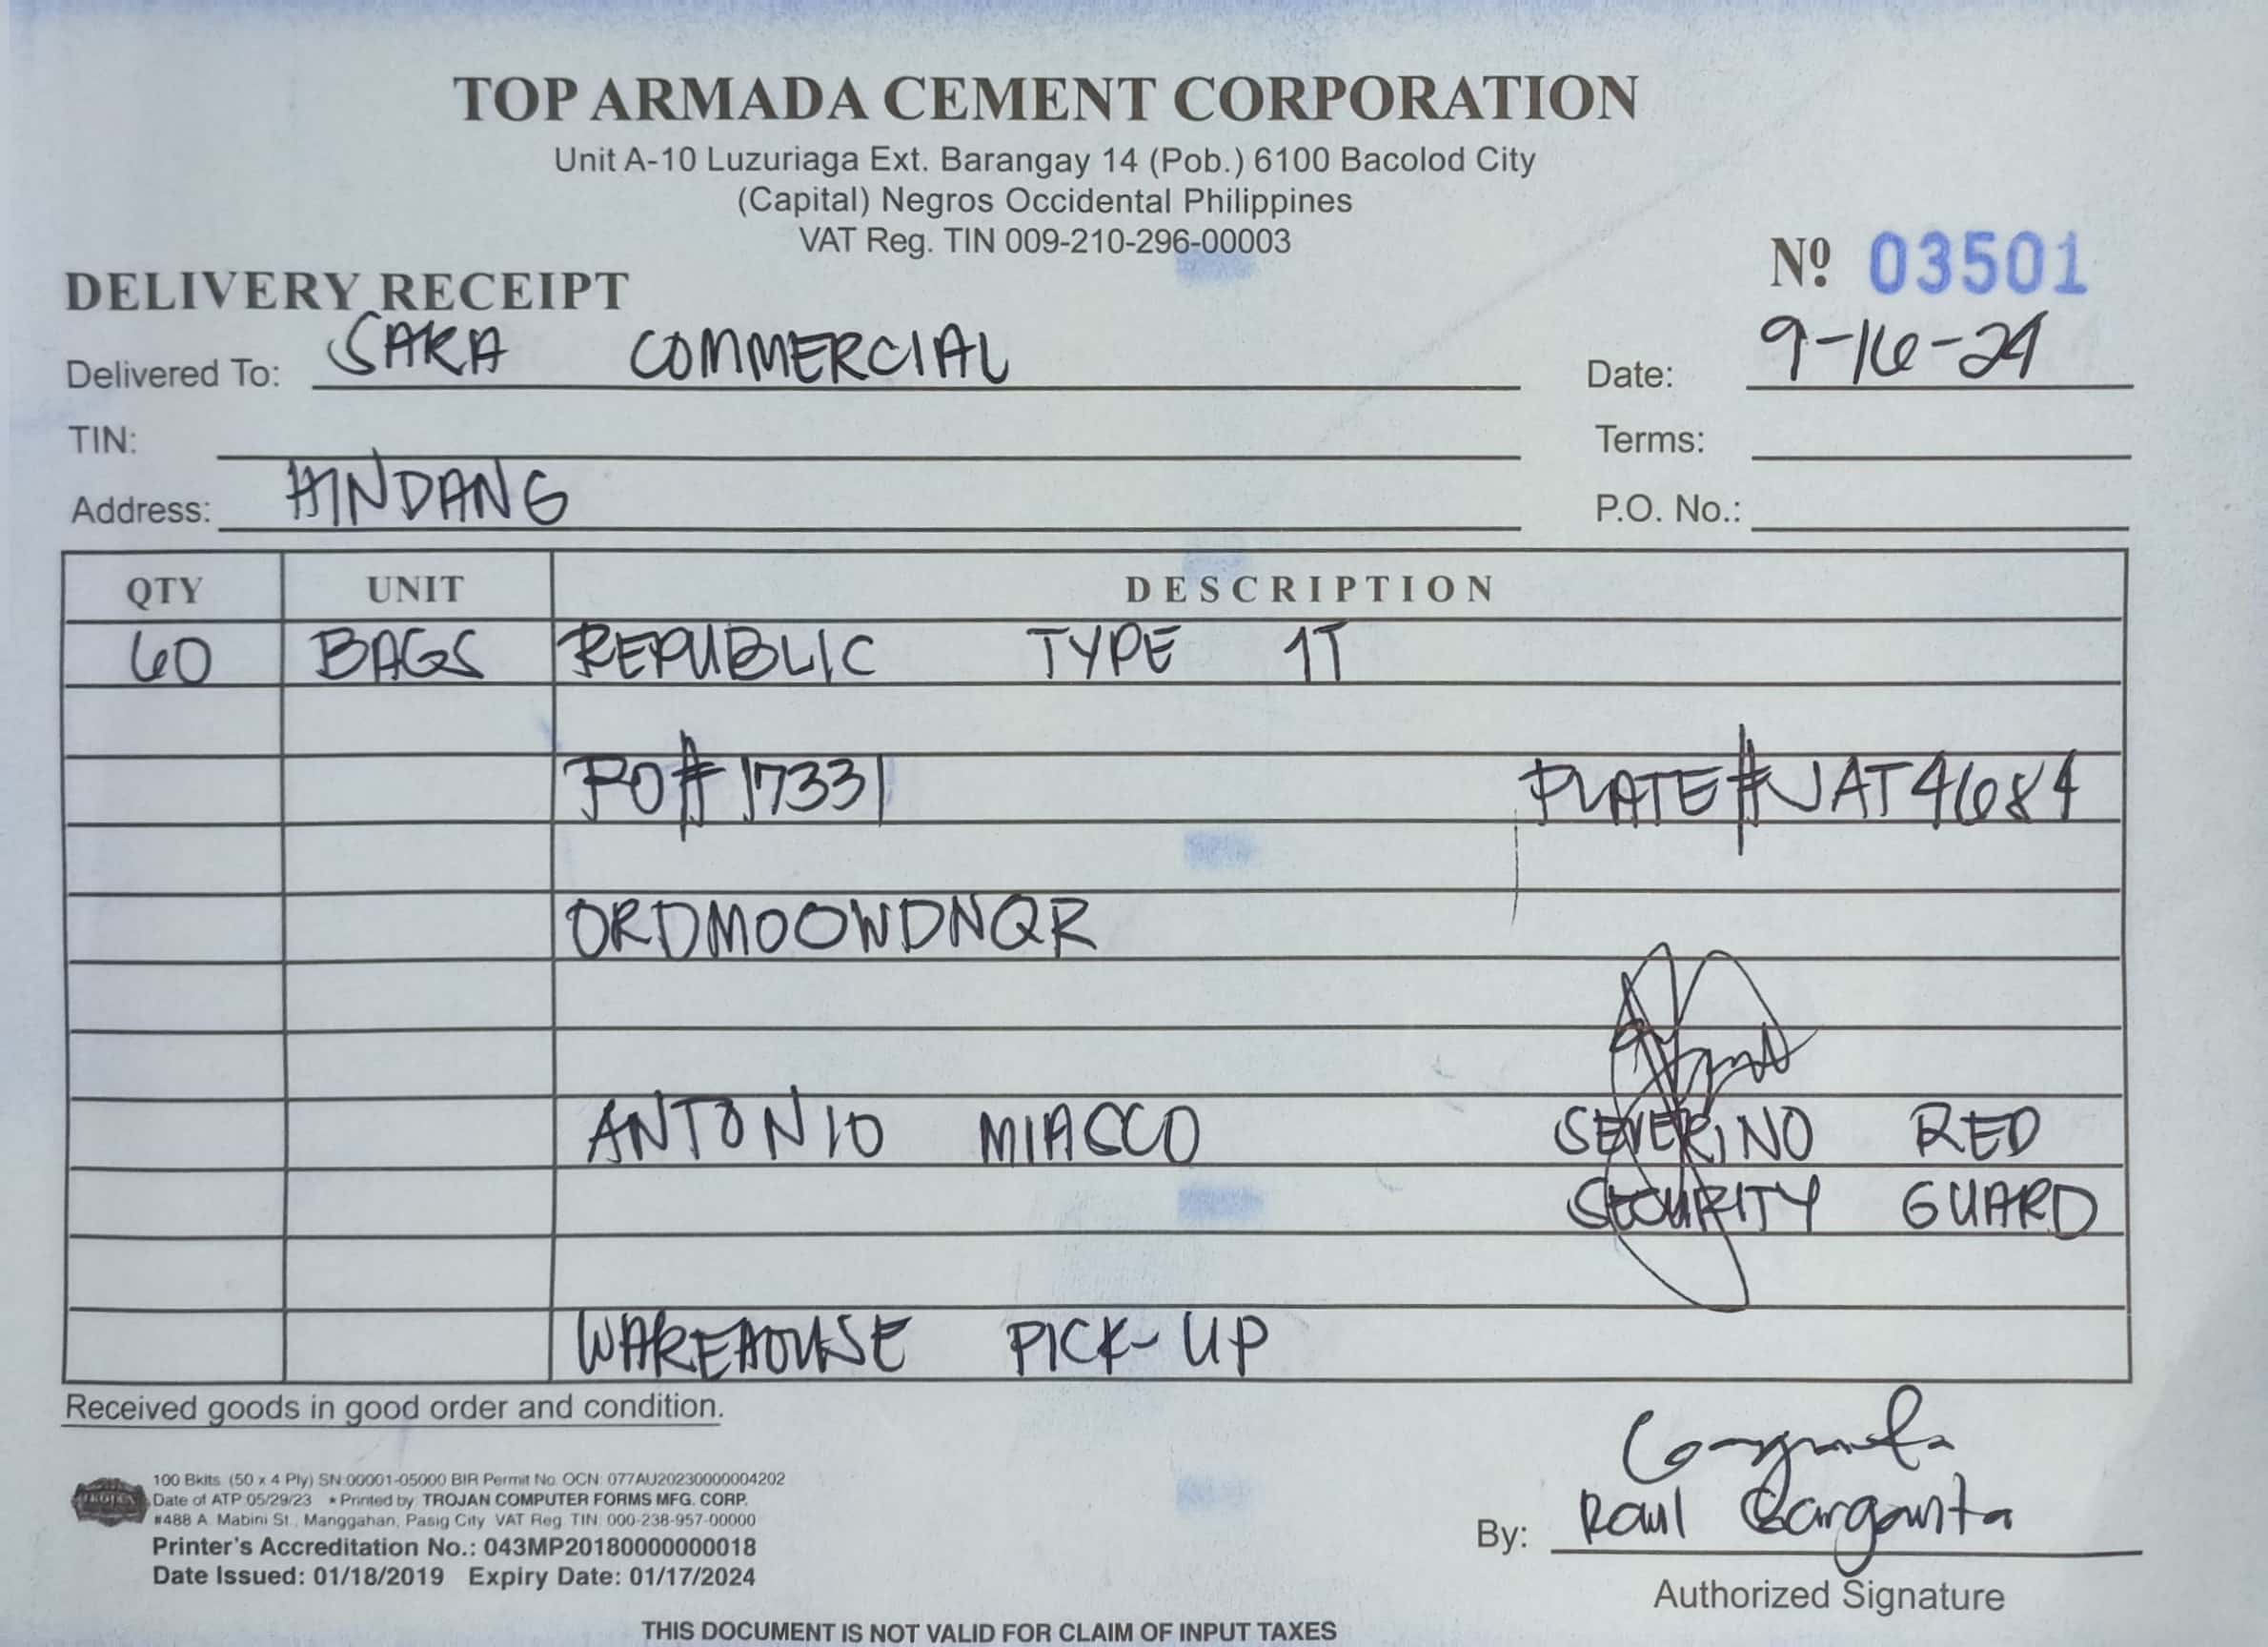 TOP ARMADA CEMENT CORPORATION
Unit A-10 Luzuriaga Ext. Barangay 14 (Pob.) 6100 Bacolod City
(Capital) Negros Occidental Philippines
VAT Reg. TIN 009-210-296-00003
DELIVERY RECEIPT
Nº 03501
Delivered To: SARA COMMERCIAL Date: 9-16-24
TIN: Terms:
Address: HINDANG P.O. No.:
QTY UNIT DESCRIPTION
60 BAGS REPUBLIC TYPE 1T
PO# 17331 PLATE# JAT4684
ORDMOOWDNQR
ANTONIO MIASCO SEVERINO RED
SECURITY GUARD
WAREHOUSE PICK-UP
Received goods in good order and condition.
100 Bklts. (50 x 4 Ply) SN:00001-05000 BIR Permit No. OCN: 077AU20230000004202
Date of ATP 05/29/23 * Printed by: TROJAN COMPUTER FORMS MFG. CORP.
#488 A. Mabini St., Manggahan, Pasig City VAT Reg. TIN: 000-238-957-00000
Printer's Accreditation No.: 043MP20180000000018
Date Issued: 01/18/2019 Expiry Date: 01/17/2024
By: Raul Garganta
Authorized Signature
THIS DOCUMENT IS NOT VALID FOR CLAIM OF INPUT TAXES